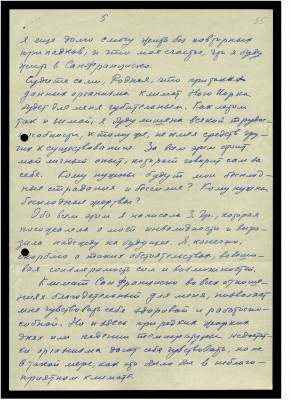 5
35
я еще долго смогу жить без повторных
припадков, и что мое счастье, что я буду
жить в Сан Франциско.
Судите сами, Родная, что при таких
данных организма климат Нью Йорка
будет для меня губительным. Как летом
так и зимой, я буду лишена всякой трудо-
способности, к тому же, не имея средств
к существованию. За всем этим стоит
мой личный опыт, который говорит сам за
себя. Кому нужны будут мои
страдания и бессилие? Кому нужна
жертва?
Обо всем этом я написала З. Гр., которая
посочувствовала о моей инвалидности и выра-
зила надежду на будущее. Я, конечно,
скорблю о таких обстоятельствах,
сил и возможностей.
Климат Сан Франциско во всех отноше-
ниях благодетельный для меня, позволяет
мне чувствовать себя здоровой и работоспо-
собной. Но и здесь при редких жарких
днях или падении температуры недостат-
ки организма дают себя чувствовать, но не
в такой мере, как это было бы в неблаго-
приятном климате.